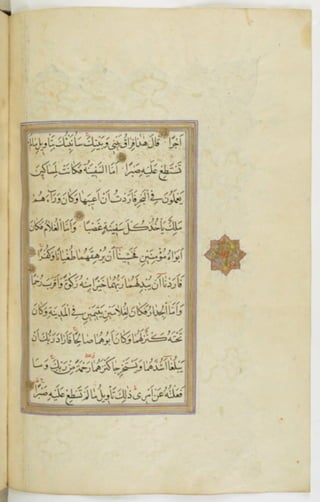 اَجْرًا قَالَ هٰذَا فِرَاقُ بَيْنِي وَبَيْنِكَ سَأُنَبِّئُكَ بِتَأْوِيلِ مَا لَمْ
تَسْتَطِعْ عَلَيْهِ صَبْرًا اَمَّا السَّفِينَةُ فَكَانَتْ لِمَسَاكِينَ
يَعْمَلُونَ فِي الْبَحْرِ فَاَرَدْتُ اَنْ اَعِيبَهَا وَكَانَ وَرَاءَهُمْ
مَلِكٌ يَأْخُذُ كُلَّ سَفِينَةٍ غَصْبًا وَاَمَّا الْغُلَامُ فَكَانَ
اَبَوَاهُ مُؤْمِنَيْنِ فَخَشِينَا اَنْ يُرْهِقَهُمَا طُغْيَانًا وَكُفْرًا
فَاَرَدْنَا اَنْ يُبْدِلَهُمَا رَبُّهُمَا خَيْرًا مِنْهُ زَكٰوةً وَاَقْرَبَ رُحْمًا
وَاَمَّا الْجِدَارُ فَكَانَ لِغُلَامَيْنِ يَتِيمَيْنِ فِي الْمَدِينَةِ وَكَانَ
تَحْتَهُ كَنْزٌ لَهُمَا وَكَانَ اَبُوهُمَا صَالِحًا فَاَرَادَ رَبُّكَ اَنْ
يَبْلُغَا اَشُدَّهُمَا وَيَسْتَخْرِجَا كَنْزَهُمَا رَحْمَةً مِنْ رَبِّكَ وَمَا
فَعَلْتُهُ عَنْ اَمْرِي ذٰلِكَ تَأْوِيلُ مَا لَمْ تَسْطِعْ عَلَيْهِ صَبْرًا